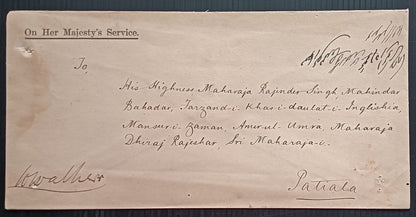 On Her Majesty's Service.
To,
His Highness Maharaja Rajinder Singh Mahindar
Bahadar, Farzand-i-Khas-i-daulat-i-Inglishia,
Mansur-i-Zaman, Amir-ul-Umra, Maharaja
Dhiraj Rajeshar, Sri Maharaja-i-
Patiala